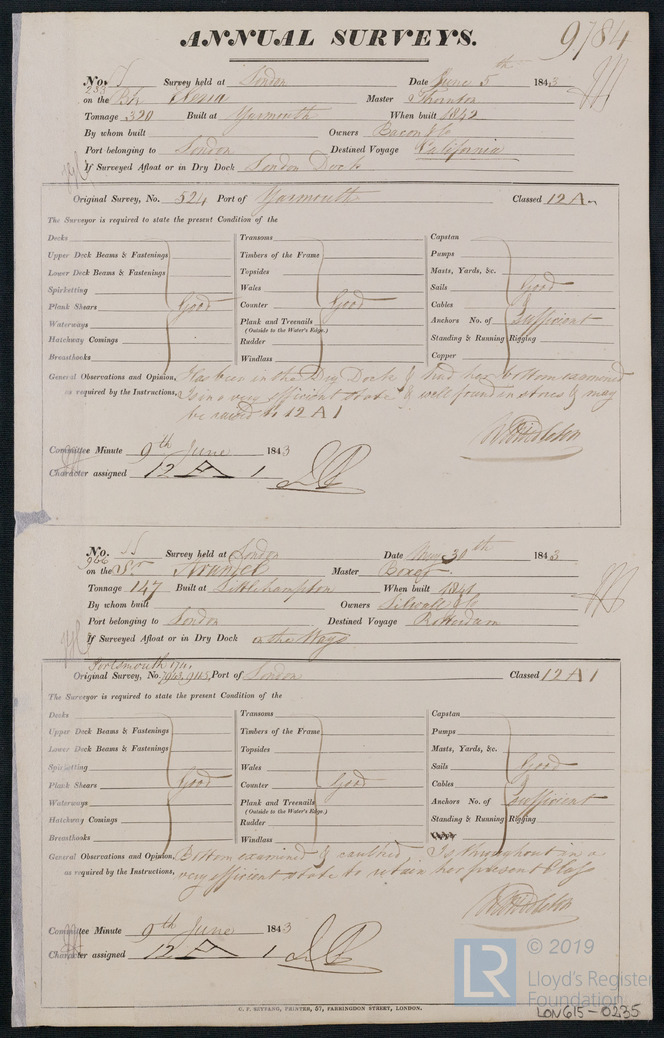 ANNUAL SURVEYS. 9784
No. Survey held at London Date June 5th 1843
233 on the Bk Master Thornton
Tonnage 320 Built at Yarmouth When built 1842
By whom built Owners Bacon & Co
Port belonging to London Destined Voyage California
If Surveyed Afloat or in Dry Dock London Dock
Original Survey, No. 524 Port of Yarmouth Classed 12 A
The Surveyor is required to state the present Condition of the
Decks Transoms Capstan
Upper Deck Beams & Fastenings Timbers of the Frame Pumps
Lower Deck Beams & Fastenings Topsides Masts, Yards, &c.
Spirketting Wales Sails Good
Plank Shears Good Counter Good Cables &
Waterways Plank and Treenails Anchors No. of Sufficient
(Outside to the Water's Edge.)
Hatchway Comings Rudder Standing & Running Rigging
Breasthooks Windlass Copper
General Observations and Opinion, Has been in the Dry Dock & had her bottom examined
as required by the Instructions, Is in a very efficient state & well found in stores & may
be 12 A 1
W Middleton
Committee Minute 9th June 1843
Character assigned 12 A 1
No. Survey held at London Date May 30th 1843
966 on the Sr Arundel Master
Tonnage 147 Built at Littlehampton When built 1841
By whom built Owners & Co
Port belonging to London Destined Voyage Rotterdam
If Surveyed Afloat or in Dry Dock on the Ways
Portsmouth
Original Survey, No. 7943, 9145, Port of London Classed 12 A 1
The Surveyor is required to state the present Condition of the
Decks Transoms Capstan
Upper Deck Beams & Fastenings Timbers of the Frame Pumps
Lower Deck Beams & Fastenings Topsides Masts, Yards, &c.
Spirketting Wales Sails Good
Plank Shears Good Counter Good Cables &
Waterways Plank and Treenails Anchors No. of Sufficient
(Outside to the Water's Edge.)
Hatchway Comings Rudder Standing & Running Rigging
Breasthooks Windlass
General Observations and Opinion, Bottom examined & caulked Is throughout in a
as required by the Instructions, very efficient state to retain her present Class
W Middleton
Committee Minute 9th June 1843
Character assigned 12 A 1
C. F. SEYFANG, PRINTER, 57, FARRINGDON STREET, LONDON.
LR © 2019
Lloyd's Register
Foundation
LON615-0235